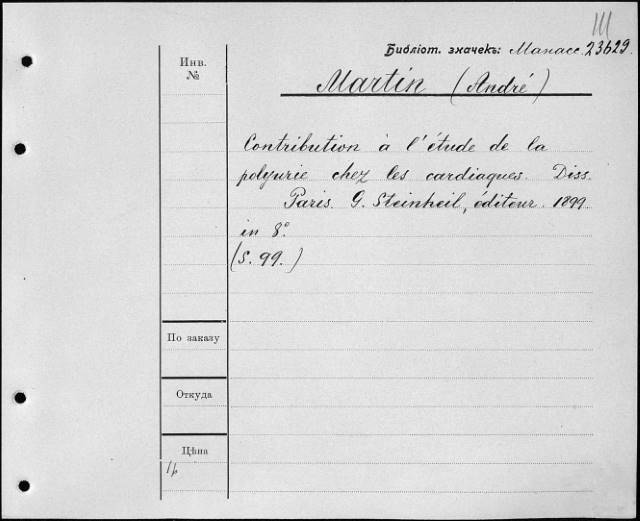 III
Библіот. значекъ: Манасс. 23629.
Инв.
№
Martin (André)
Contribution à l'étude de la
polyurie chez les cardiaques. Diss.
Paris. G. Steinheil, éditeur. 1899
in 8º.
(S. 99.)
По заказу
Откуда
Цѣна